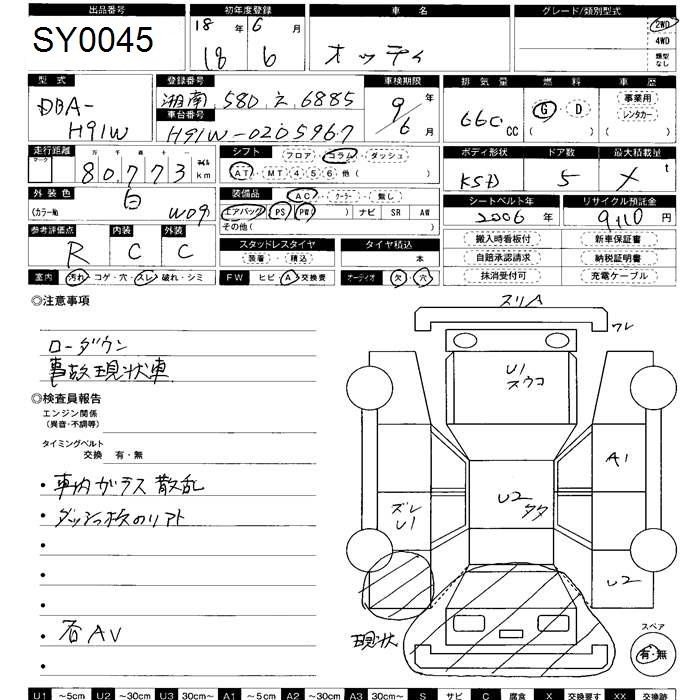 出品番号 初年度登録 車名 グレード/類別型式
SY0045 18年 6月 2WD
18 6 オッティ 4WD
類型なし
型式 登録番号 車検期限 排気量 燃料 車歴
DBA- 湘南 580 え 6885 9年 事業用
H91W 車台番号 660cc G・D レンタカー
H91W-0205967 6月 ( ) ( )
走行距離 シフト フロア・コラム・ダッシュ ボディ形状 ドア数 最大積載量
マーク 十万千百十一 マイル
80,773 km AT・MT 4 5 6 他( ) 5 X t
外装色 白 装備品 AC・クーラー・無し シートベルト年 リサイクル預託金
(カラー№ W09 エアバック・PS・PW( ) ナビ SR AW 2006年 9110円
その他( )
参考評価点 内装 外装 スタッドレスタイヤ タイヤ積込 搬入時看板付 新車保証書
R C C 装着・積込 本 自賠承認請求 納税証明書
室内 汚れ・コゲ・穴・スレ・破れ・シミ FW ヒビ・A・交換要 オーディオ 欠・穴 抹消受付可 充電ケーブル
◎注意事項
ローダウン
事故現状車
◎検査員報告
エンジン関係
(異音・不調等)
タイミングベルト
交換 有・無
・車内ガラス散乱
・
・
・
・
・ AV
スリA
ワレ
U1
A1
U2
ズレ
U1
U2
現状
スペア
有・無
U1 ～5cm U2 ～30cm U3 30cm～ A1 ～5cm A2 ～30cm A3 30cm～ S サビ C 腐食 X 交換要す XX 交換跡